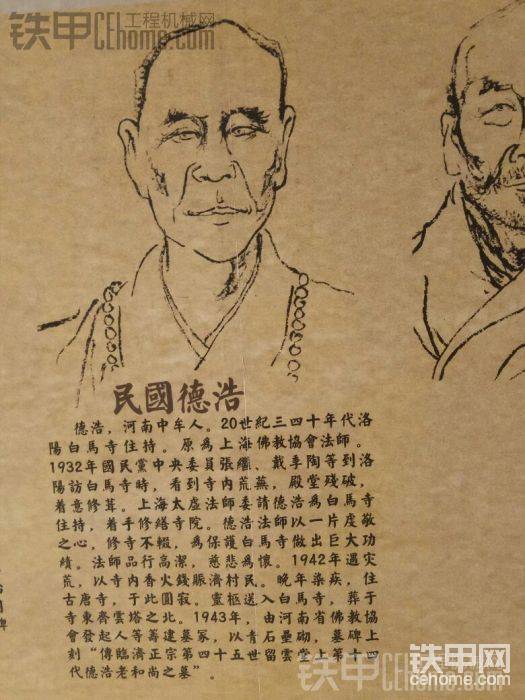 铁甲 工程机械网
CEhome.com
民國德浩
德浩，河南中牟人。20世紀三四十年代洛
陽白馬寺住持。原爲上海佛教協會法師。
1932年國民黨中央委員張繼、戴季陶等到洛
陽訪白馬寺時，看到寺内荒蕪，殿堂殘破，
着意修葺。上海太虛法師委請德浩爲白馬寺
住持，着手修繕寺院。德浩法師以一片虔敬
之心，修寺不輟，爲保護白馬寺做出巨大功
績。法師品行高潔，慈悲爲懷。1942年遇灾
荒，以寺内香火錢賑濟村民。晚年染疾，住
古唐寺，于此圓寂。靈柩送入白馬寺，葬于
寺東齊雲塔之北。1943年，由河南省佛教協
會發起人等籌建墓冢，以青石壘砌，墓碑上
刻“傳臨濟正宗第四十五世留雲堂上第十四
代德浩老和尚之墓”。
铁甲 工程机械网
cehome.com
铁甲网
cehome.com